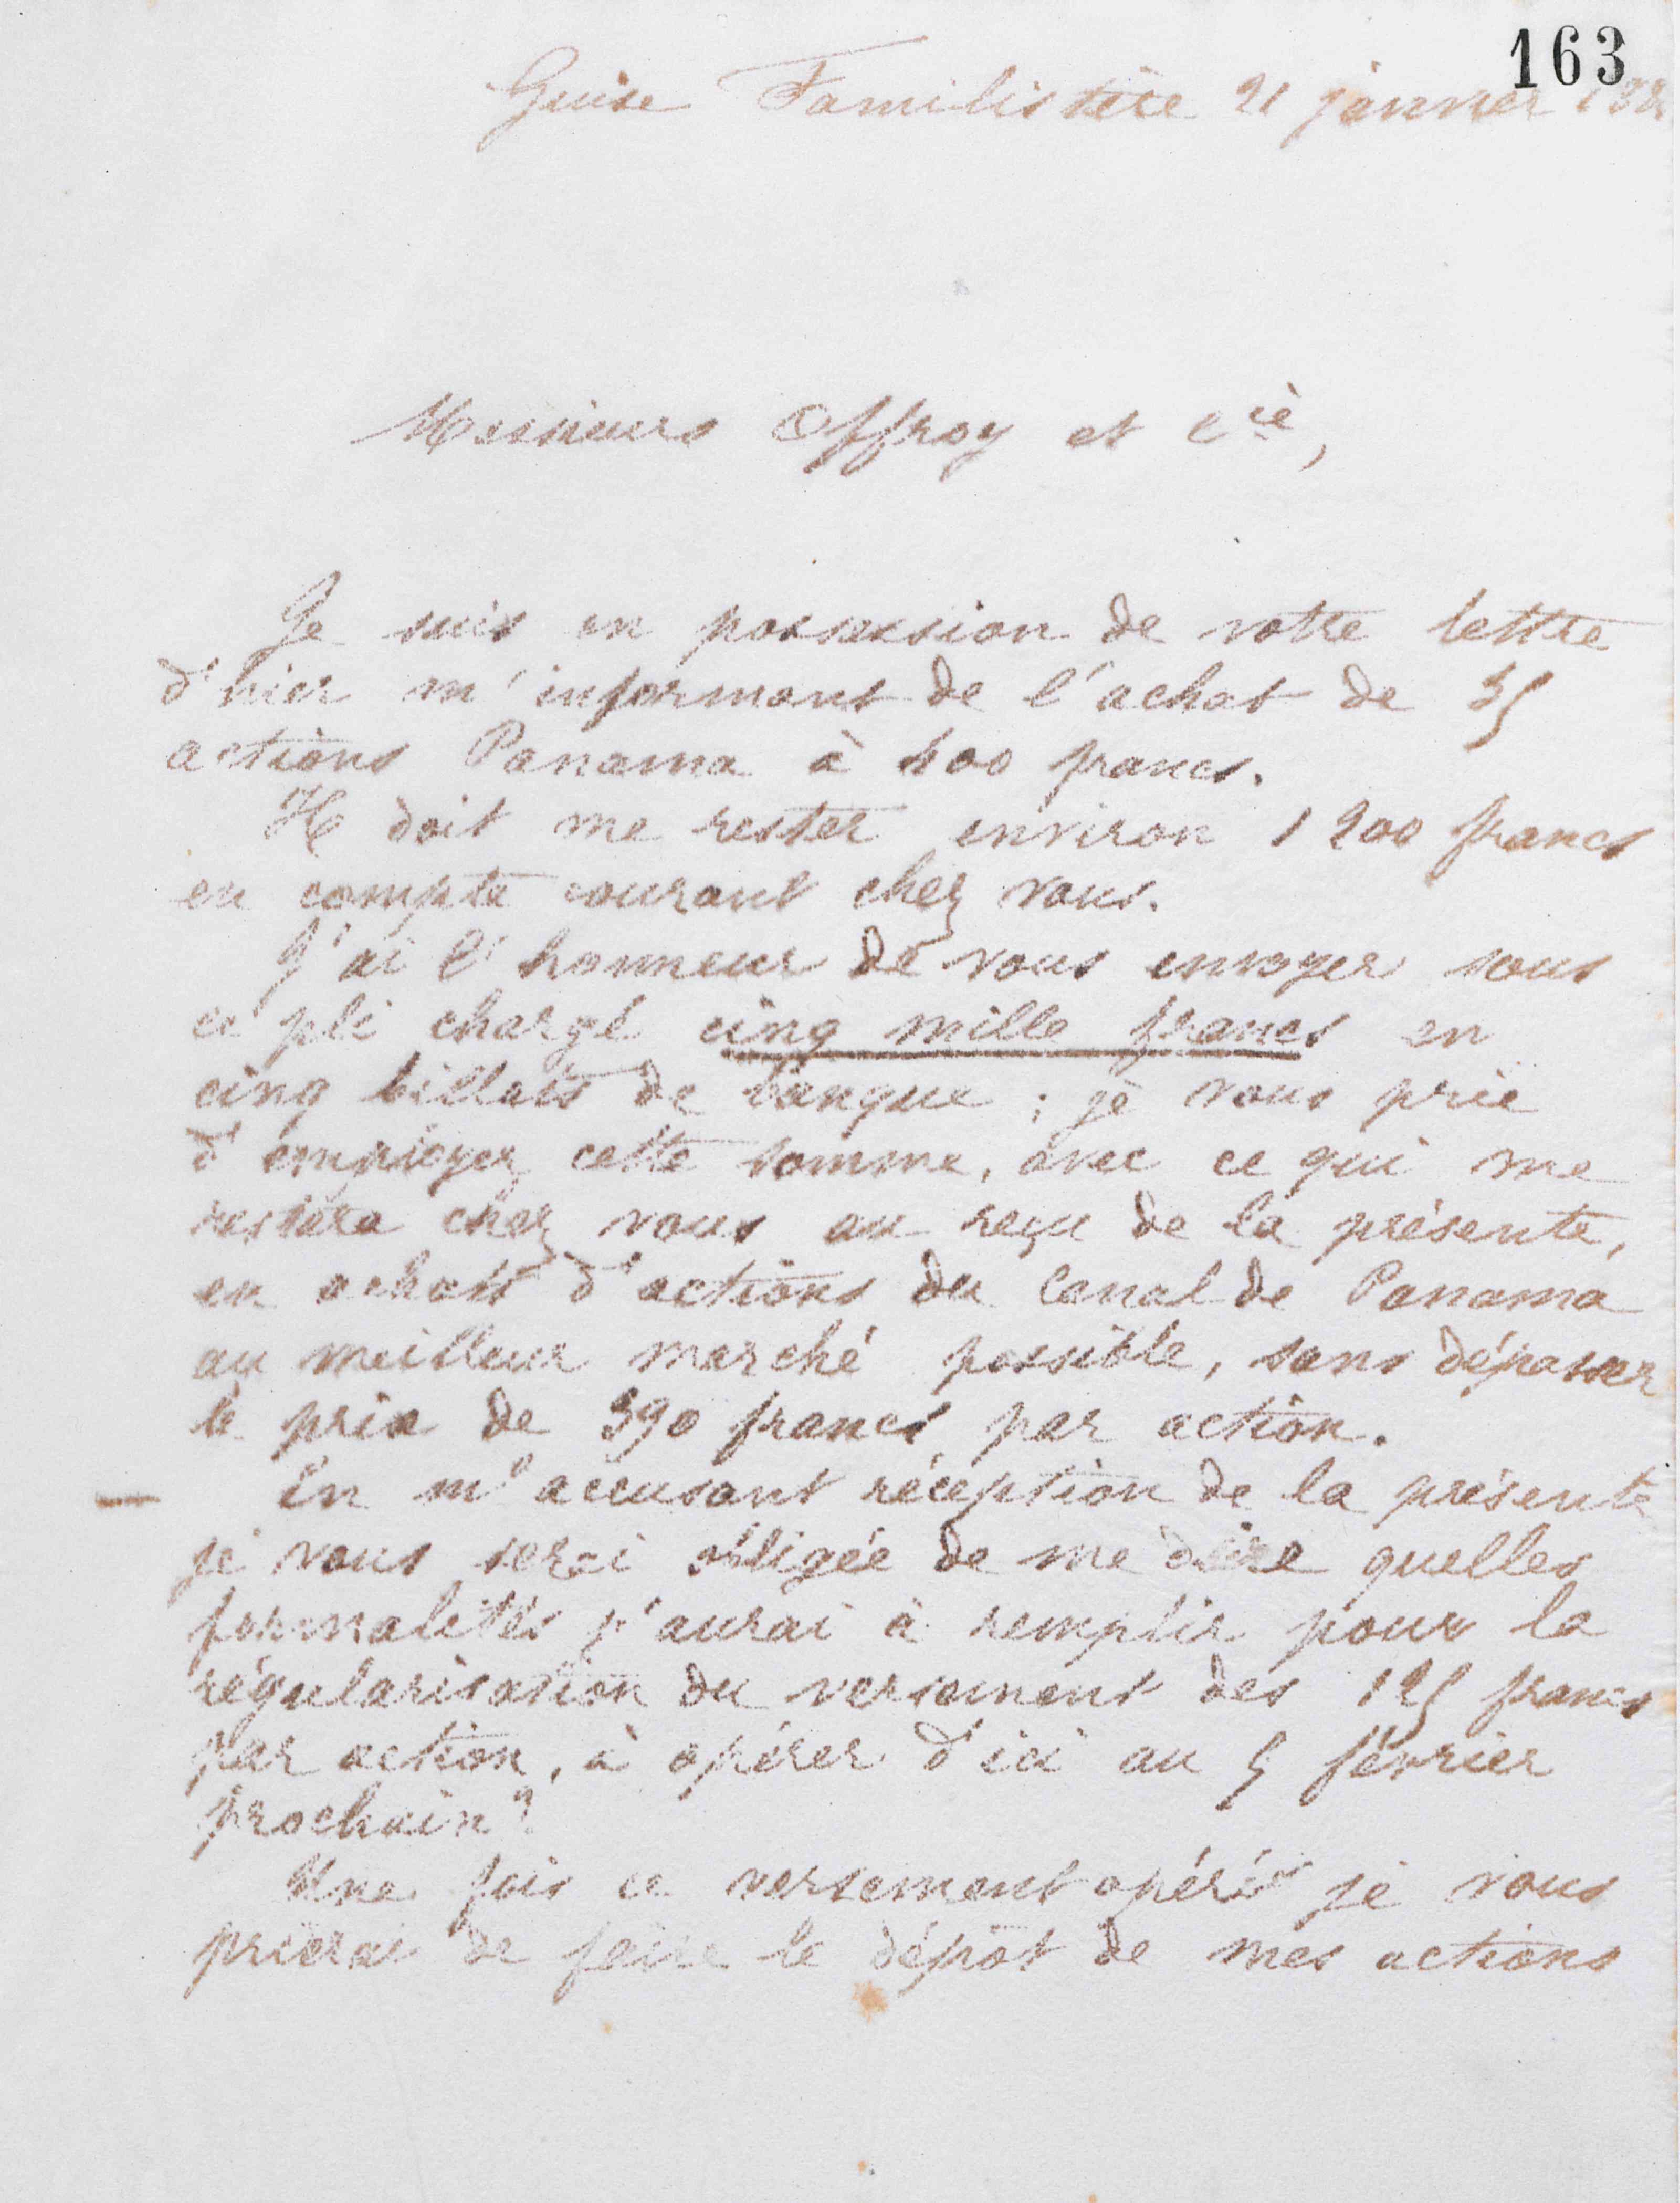 163
Guise Familistère 21 janvier
Messieurs Offroy et Cie,
Je suis en possession de votre lettre
d'hier m'informant de l'achat de 35
actions Panama à 400 francs.
Il doit me rester environ 1200 francs
en compte courant chez vous.
J'ai l'honneur de vous envoyer sous
ce pli chargé cinq mille francs en
cinq billets de banque ; je vous prie
d'employer cette somme, avec ce qui me
restera chez vous au reçu de la présente,
en achats d'actions du Canal de Panama
au meilleur marché possible, sans dépasser
le prix de 390 francs par action.
— En m'accusant réception de la présente
je vous serai obligée de me dire quelles
formalités j'aurai à remplir pour la
régularisation du versement des 125 francs
par action, à opérer d'ici au 5 février
prochain ?
Une fois ce versement opéré je vous
prierai de faire le dépôt de mes actions